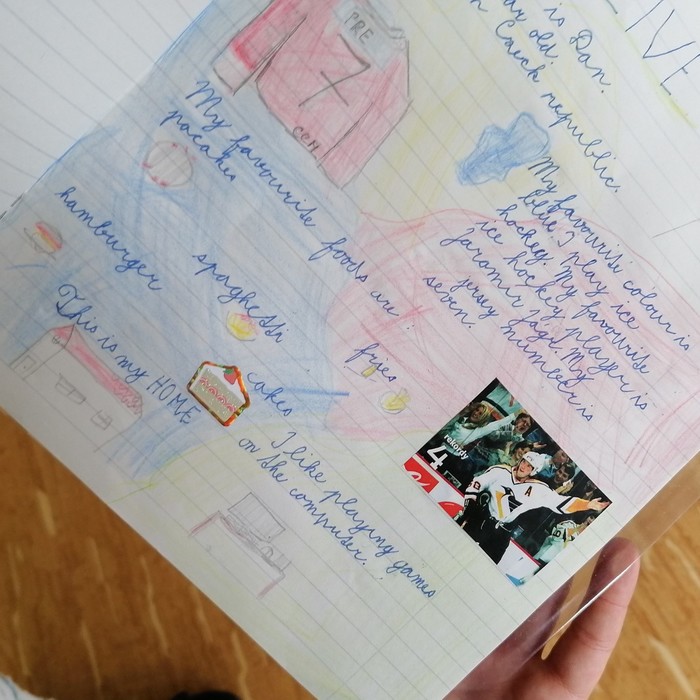 IVE
is Dan.
old.
Czech republic.
My favourite colour is
blue. I play ice
hockey. My favourite
ice hockey player is
Jaromír Jágr. My
jersey number is
seven.
PRE
7
My favourite foods are
pacakes
hamburger
spaghetti
fries
cakes
This is my HOME
I like playing games
on the computer.
rekordy
4
A